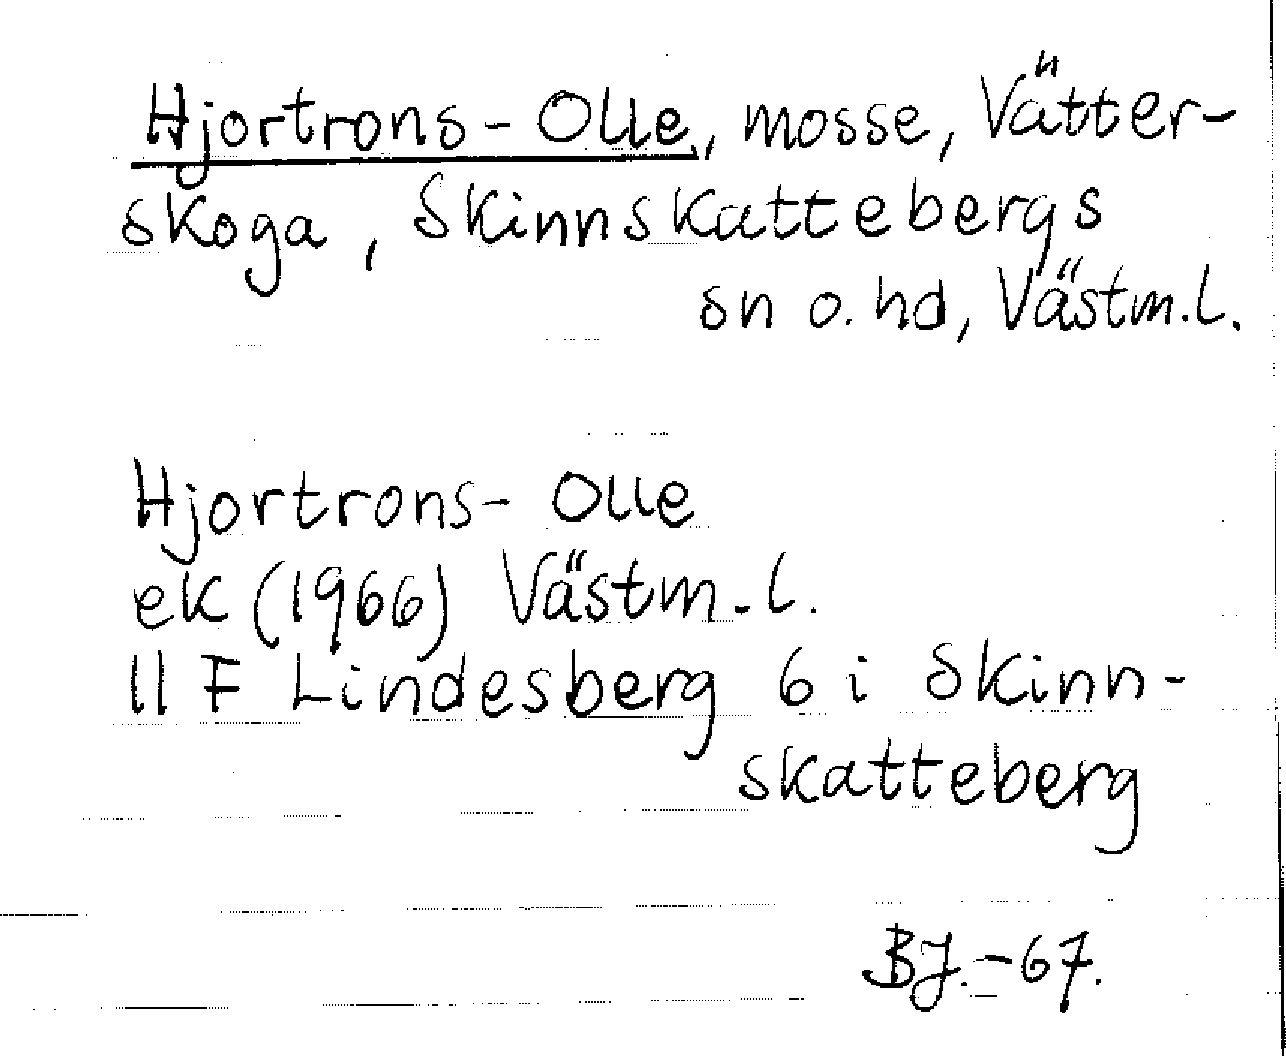 Hjortrons-Olle, mosse, Vätter-
skoga, Skinnskattebergs
sn o. hd, Västm.l.
Hjortrons-Olle
ek (1966) Västm.l.
11 F Lindesberg 6 i Skinn-
skatteberg
BJ.-67.